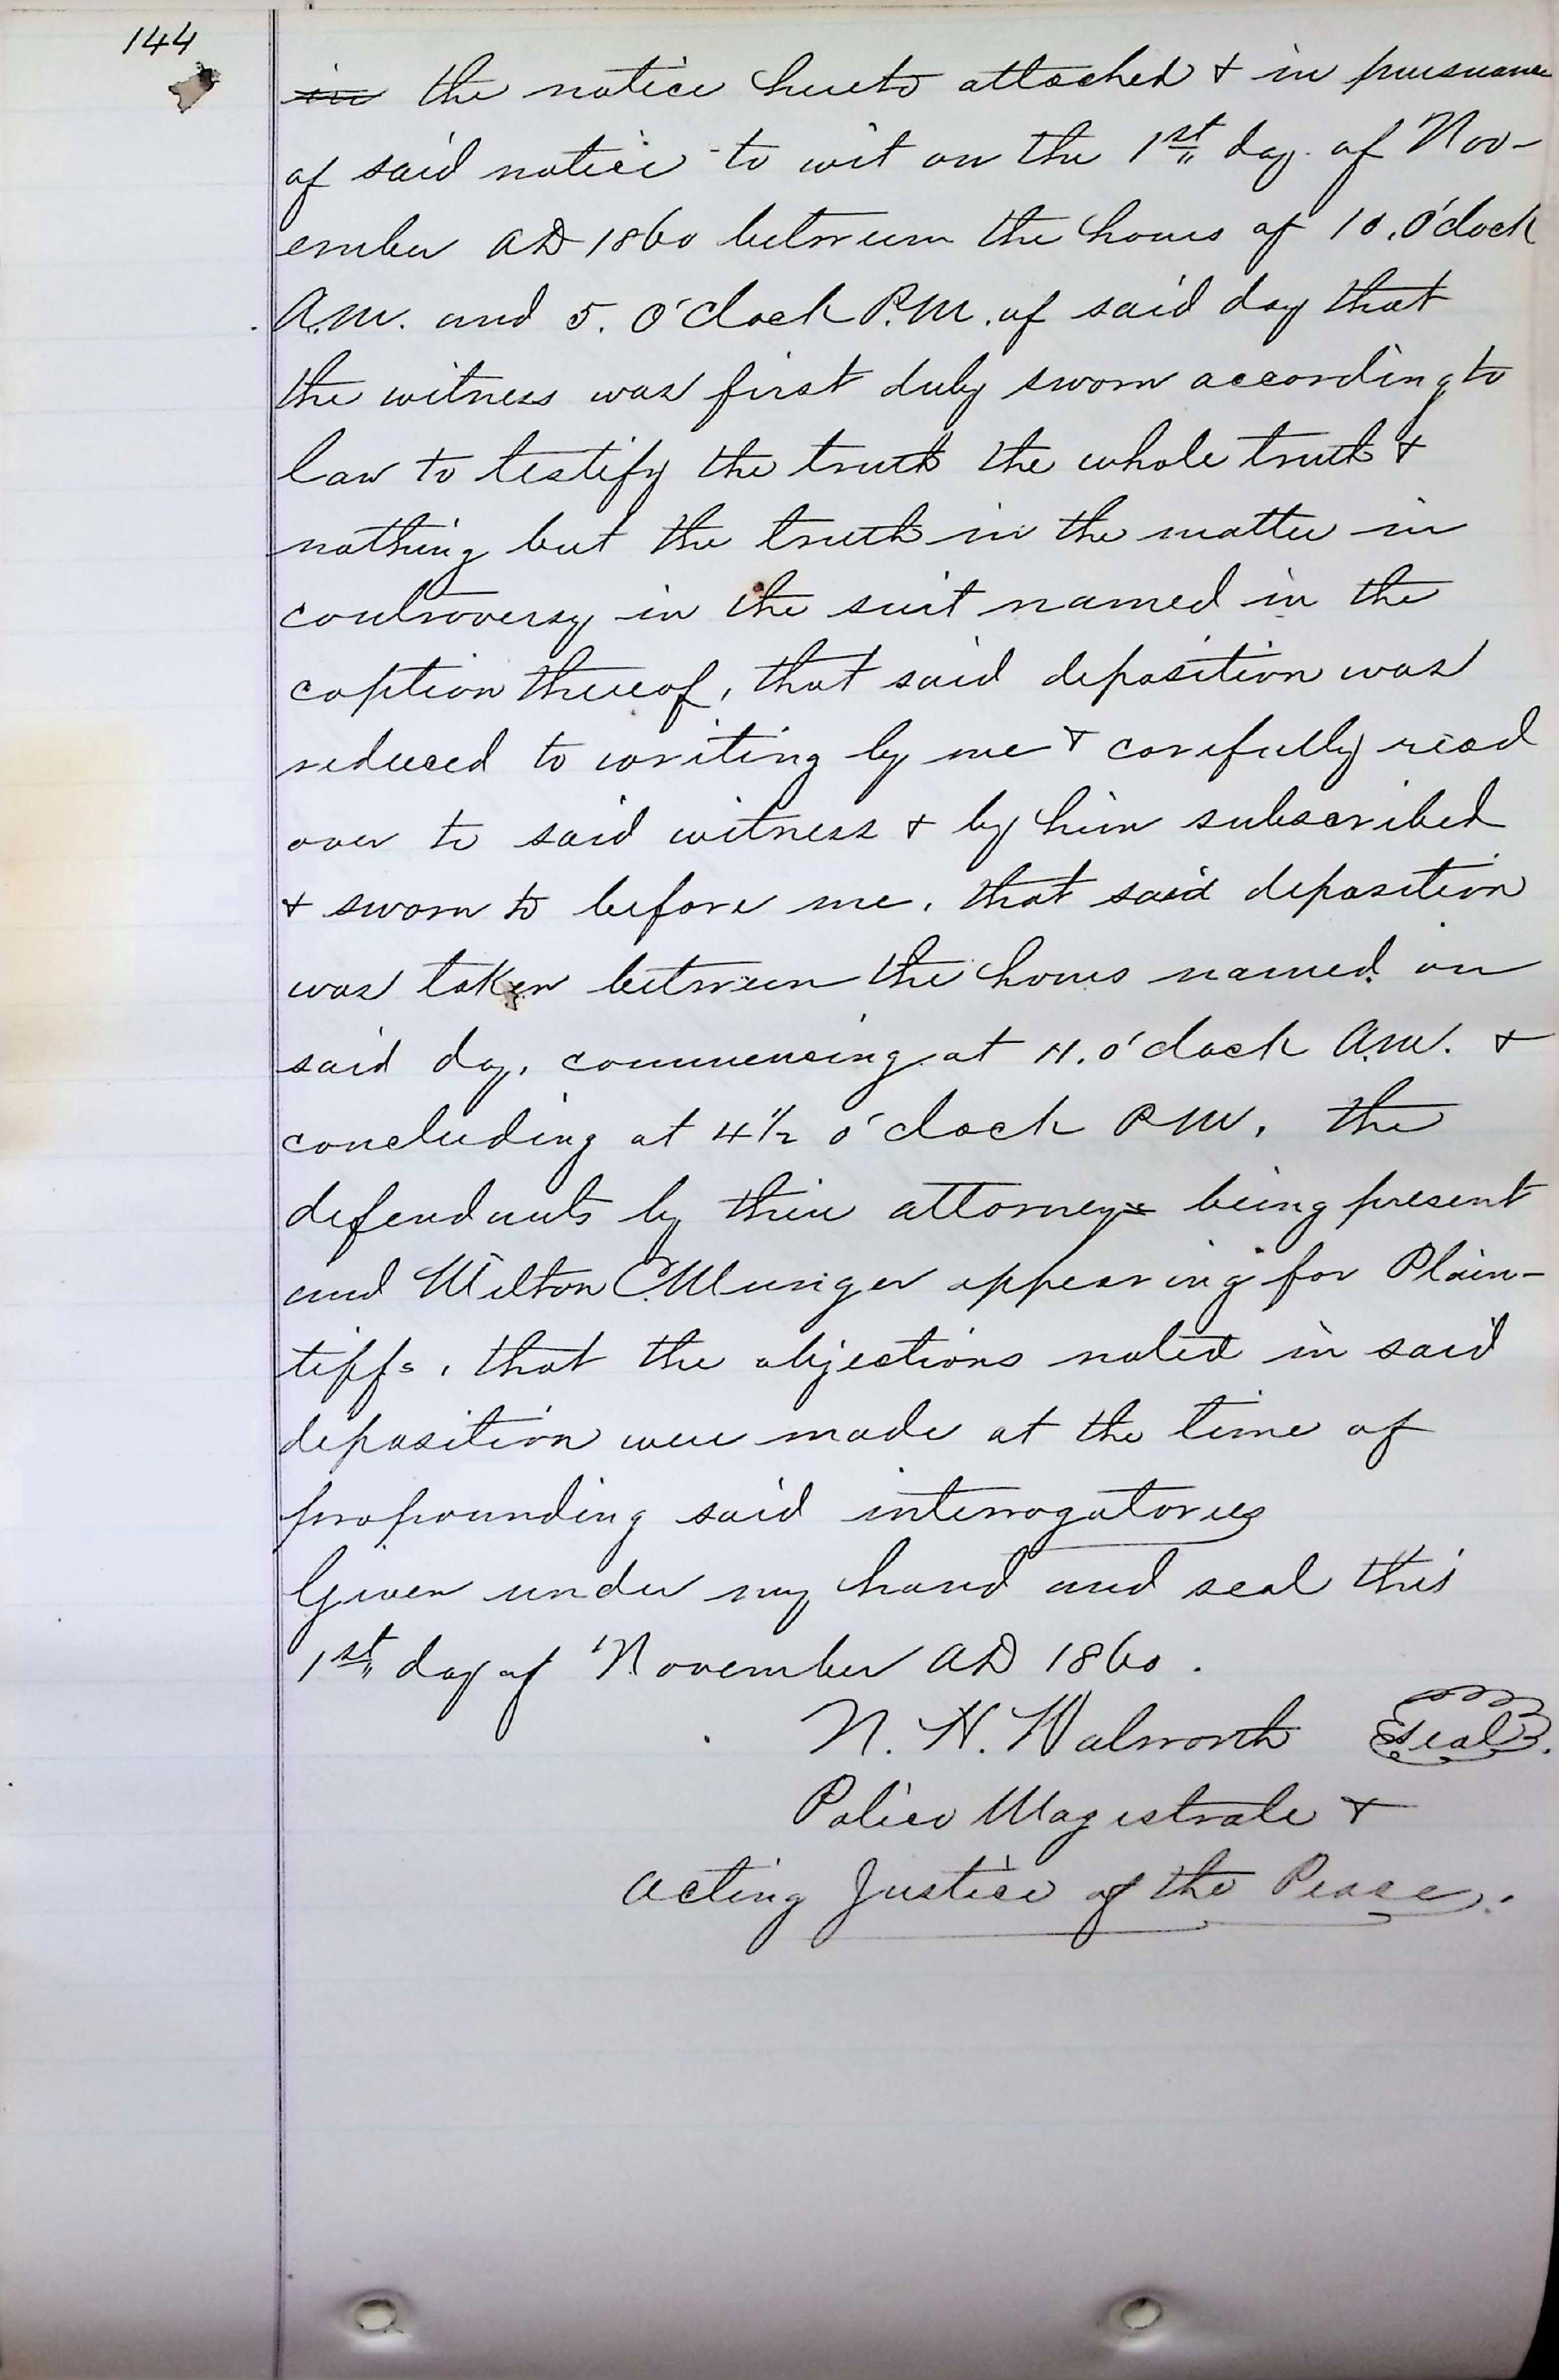 144
in the notice hereto attached & in pursuance
of said notice to wit on the 1st day of Nov-
ember AD 1860 between the hours of 10. O'clock
A.M. and 5. O'clock P.M. of said day that
the witness was first duly sworn according to
law to testify the truth the whole truth &
nothing but the truth in the matter in
controversy in the suit named in the
caption thereof, that said deposition was
reduced to writing by me & carefully read
over to said witness & by him subscribed
& sworn to before me, that said deposition
was taken between the hours named on
said day, commencing at 11. o'clock A.M. &
concluding at 4 1/2 o'clock P.M, the
defendants by their attorneys being present
and Wilton C. Munger appearing for Plain-
tiffs, that the objections noted in said
deposition were made at the time of
propounding said interrogatories
Given under my hand and seal this
1st day of November AD 1860.
N. H. Walworth Seal.
Police Magistrate &
Acting Justice of the Peace.